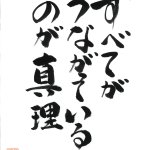 すべてが
つながている
のが真理